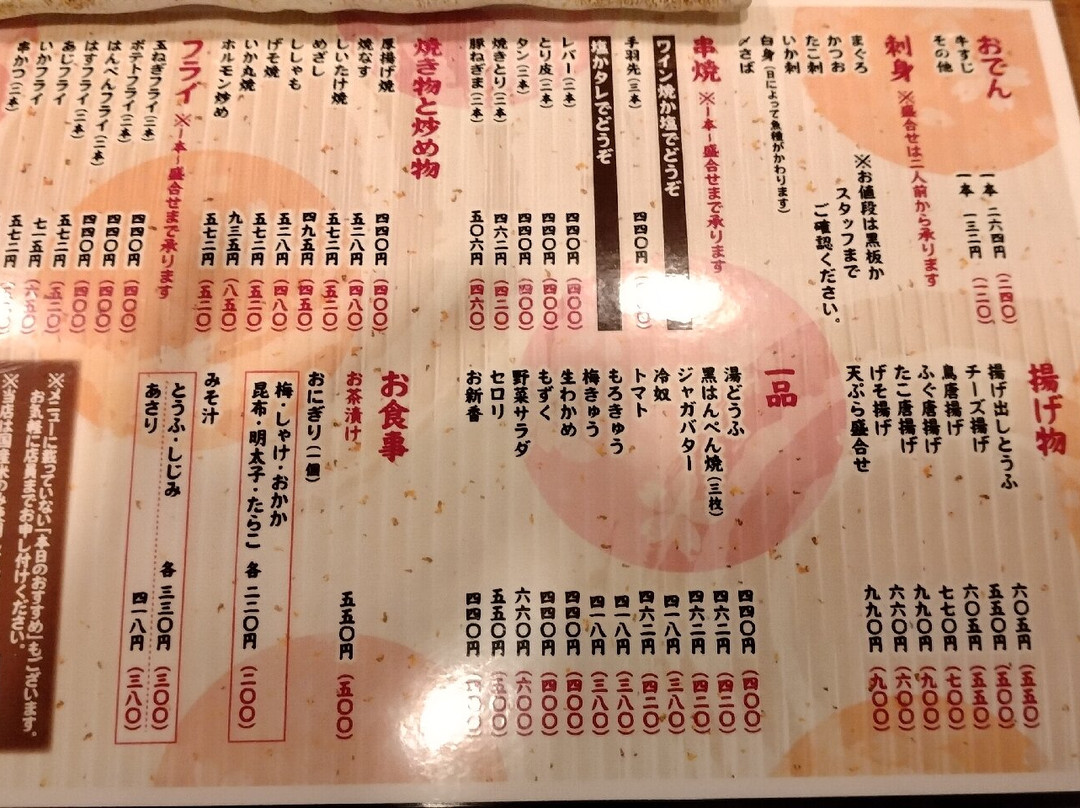 おでん
牛すじ 一本 二六四円（二四〇）
その他 一本 一三二円（一二〇）
刺身 ※盛合せは二人前から承ります
まぐろ
かつお
たこ刺
いか刺
白身（日によって魚種がかわります）
〆さば
※お値段は黒板か
スタッフまで
ご確認ください。
串焼 ※一本～盛合せまで承ります
ワイン焼か塩でどうぞ
手羽先（三本） 四四〇円
塩かタレでどうぞ
レバー（二本） 四四〇円（四〇〇）
とり皮（二本） 四四〇円（四〇〇）
タン（二本） 四六二円（四二〇）
焼きとり（二本） 四六二円（四二〇）
豚ねぎま（二本） 五〇六円（四六〇）
焼き物と炒め物
厚揚げ焼 四四〇円（四〇〇）
焼なす 五二八円（四八〇）
しいたけ焼 五七二円（五二〇）
めざし 四九五円（四五〇）
ししゃも 五二八円（四八〇）
げそ焼 五七二円（五二〇）
いか丸焼 九三五円（八五〇）
ホルモン炒め 五七二円（五二〇）
フライ ※一本～盛合せまで承ります
玉ねぎフライ（二本） 四四〇円（四〇〇）
ポテトフライ（二本） 四四〇円（四〇〇）
はんぺんフライ（二本） 四四〇円（四〇〇）
はすフライ（二本） 五七二円（五二〇）
あじフライ 七一五円（六五〇）
いかフライ 五七二円
串かつ（二本）
揚げ物
揚げ出しとうふ 六〇五円（五五〇）
チーズ揚げ 五五〇円（五〇〇）
鳥唐揚げ 六〇五円（五五〇）
ふぐ唐揚げ 七七〇円（七〇〇）
たこ唐揚げ 九九〇円（九〇〇）
げそ揚げ 六六〇円（六〇〇）
天ぷら盛合せ 九九〇円（九〇〇）
一品
湯どうふ 四四〇円（四〇〇）
黒はんぺん焼（三枚） 四六二円（四二〇）
ジャガバター 四六二円（四二〇）
冷奴 四一八円（三八〇）
トマト 四六二円（四二〇）
もろきゅう 四一八円（三八〇）
梅きゅう 四一八円（三八〇）
生わかめ 四四〇円（四〇〇）
もずく 四四〇円（四〇〇）
野菜サラダ 六六〇円（六〇〇）
セロリ 五五〇円（五〇〇）
お新香 四四〇円
お食事
お茶漬け 五五〇円（五〇〇）
おにぎり（一個）
梅・しゃけ・おかか
昆布・明太子・たらこ 各 二二〇円（二〇〇）
みそ汁
とうふ・しじみ 各 三三〇円（三〇〇）
あさり 四一八円（三八〇）
※メニューに載っていない「本日のおすすめ」もございます。
お気軽に店員までお申し付けください。
※当店は国産米のみ